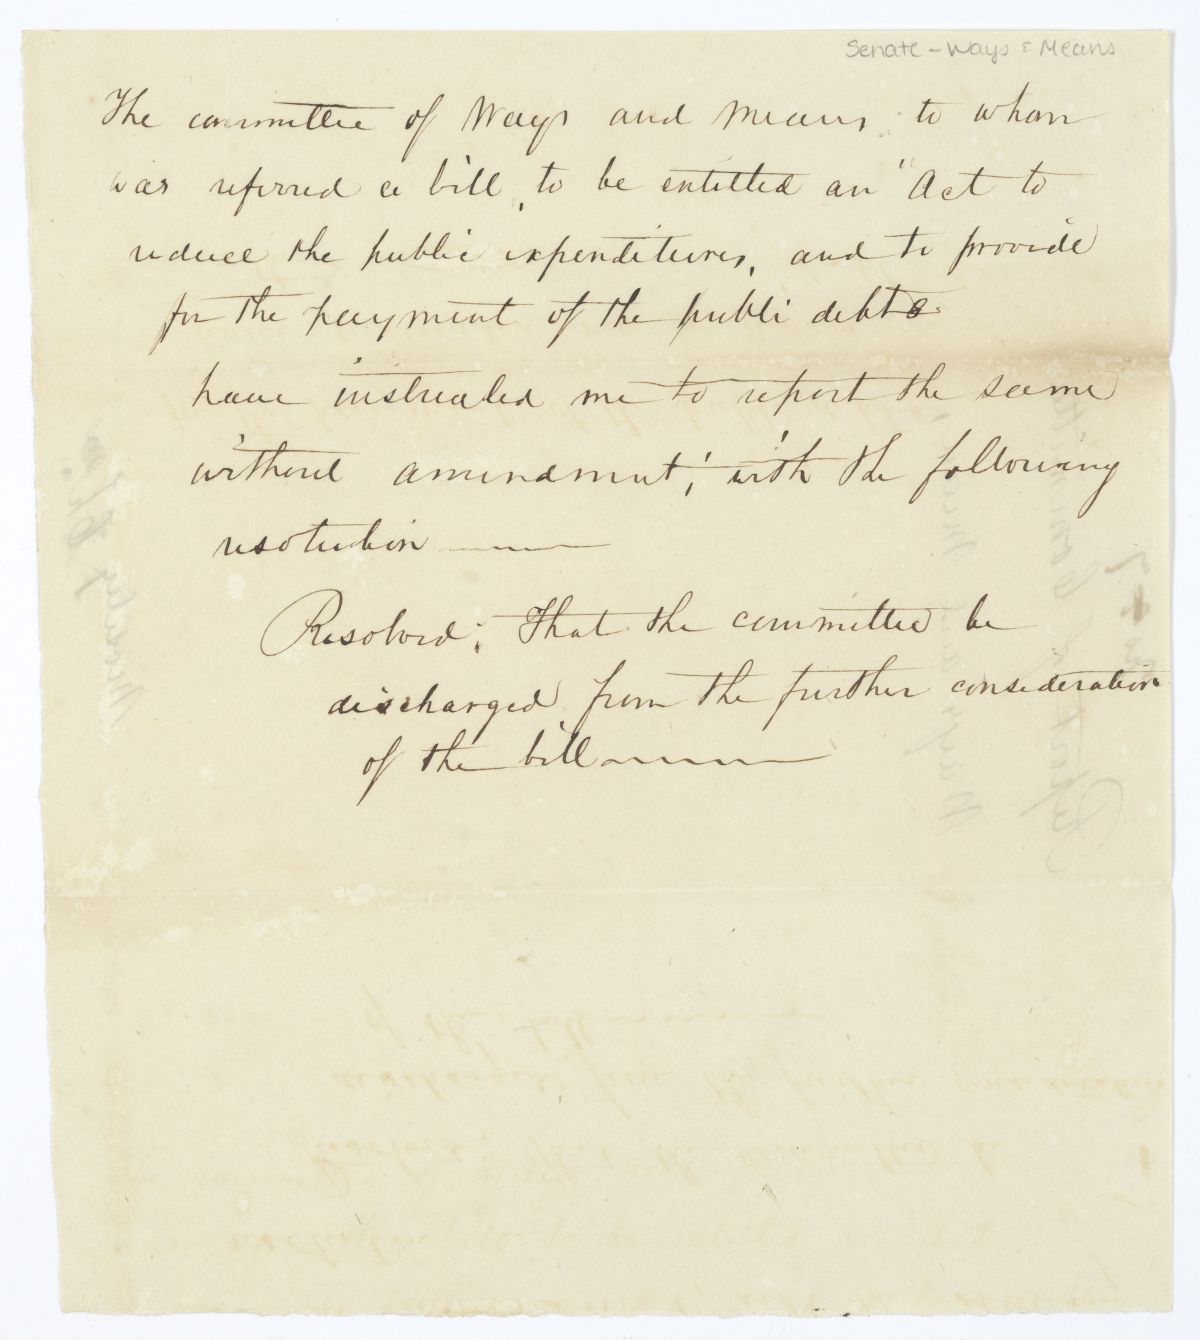 Senate - Ways & Means
The committee of Ways and Means, to whom
was referred a bill, to be entitled an "Act to
reduce the public expenditures, and to provide
for the payment of the public debts
have instructed me to report the same
without amendment, with the following
resolution
Resolved, That the committee be
discharged from the further consideration
of the bill